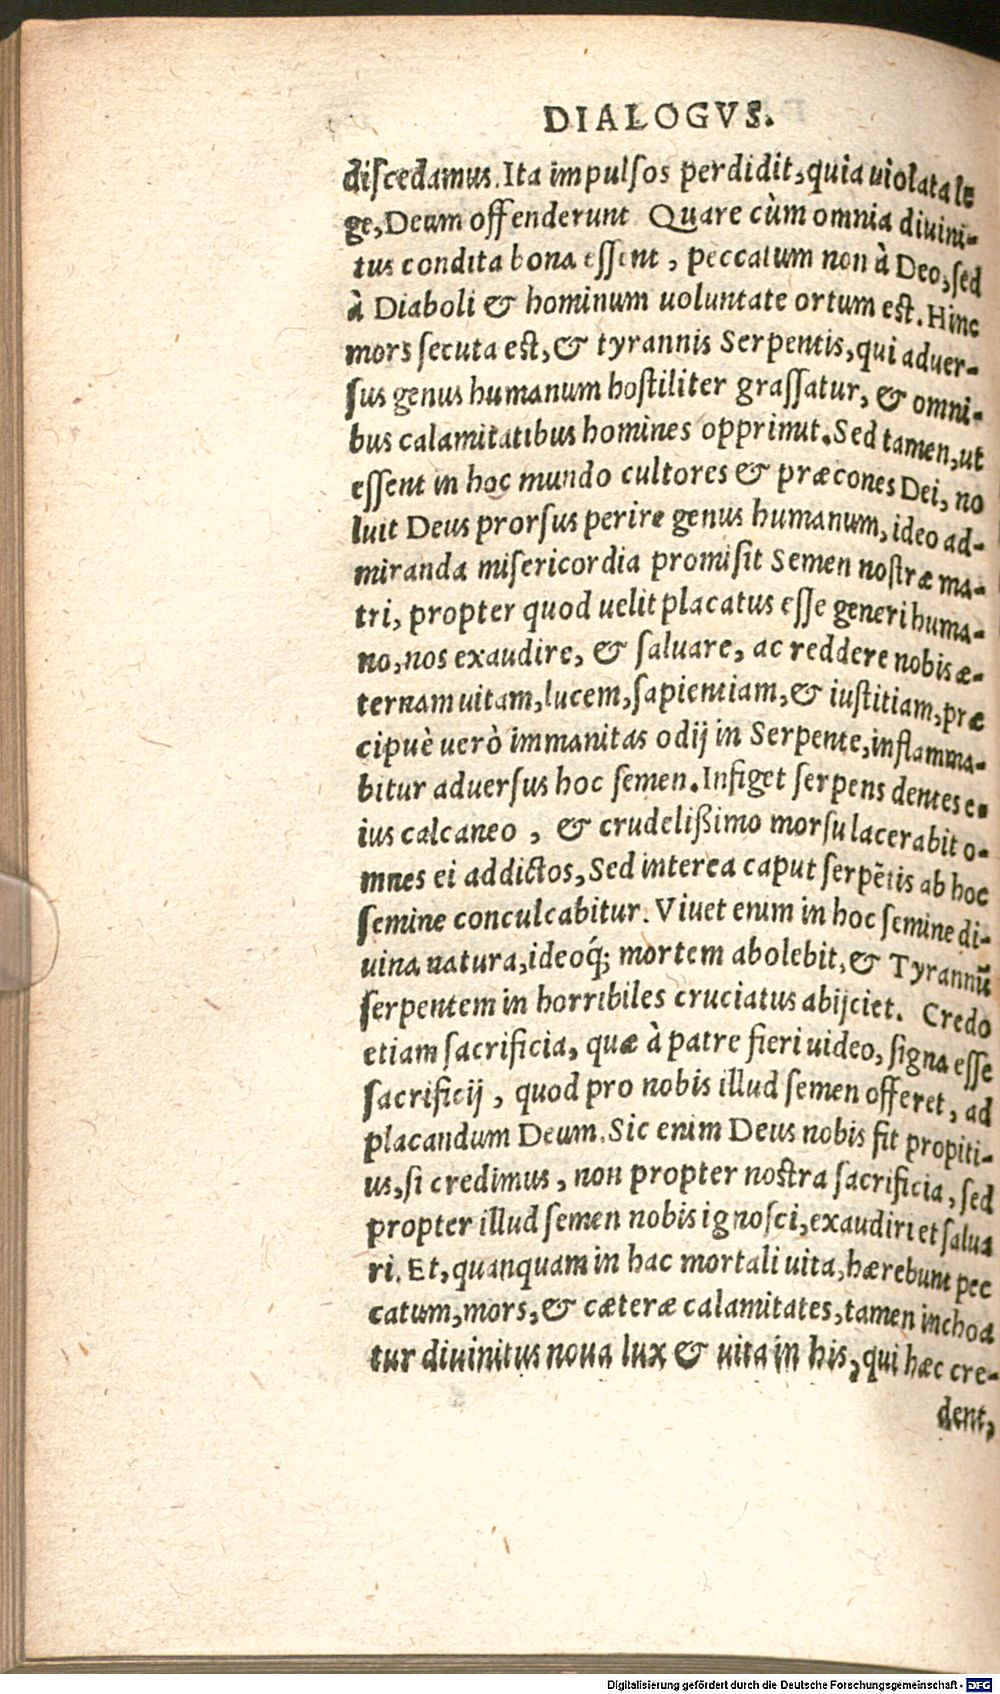 DIALOGVS.
diſcedamus. Ita impulſos perdidit, quia uiolata le
ge, Deum offenderunt Quare cùm omnia diuini-
tus condita bona eſſent, peccatum non à Deo, ſed
à Diaboli & hominum uoluntate ortum eſt. Hinc
mors ſecuta eſt, & tyrannis Serpentis, qui aduer-
ſus genus humanum hoſtiliter graſſatur, & omni-
bus calamitatibus homines opprimit. Sed tamen, ut
eſſent in hoc mundo cultores & præcones Dei, no
luit Deus prorſus perire genus humanum, ideo ad-
miranda miſericordia promiſit Semen noſtræ ma-
tri, propter quod uelit placatus eſſe generi huma-
no, nos exaudire, & ſaluare, ac reddere nobis æ-
ternam uitam, lucem, ſapientiam, & iuſtitiam, præ
cipuè uerò immanitas odij in Serpente, inflamma-
bitur aduerſus hoc ſemen. Infiget ſerpens dentes e-
ius calcaneo, & crudelißimo morſu lacerabit o-
mnes ei addictos, Sed interea caput ſerpẽtis ab hoc
ſemine conculcabitur. Viuet enim in hoc ſemine di-
uina natura, ideoq́; mortem abolebit, & Tyrannũ
ſerpentem in horribiles cruciatus abijciet. Credo
etiam ſacrificia, quæ à patre fieri uideo, ſigna eſſe
ſacrificij, quod pro nobis illud ſemen offeret, ad
placandum Deum. Sic enim Deus nobis fit propiti-
us, ſi credimus, non propter noſtra ſacrificia, ſed
propter illud ſemen nobis ignoſci, exaudiri et ſalua
ri. Et, quanquam in hac mortali uita, hærebunt pec
catum, mors, & cæteræ calamitates, tamen inchoa
tur diuinitus noua lux & uita in his, qui hæc cre-
dent,
Digitalisierung gefördert durch die Deutsche Forschungsgemeinschaft - DFG